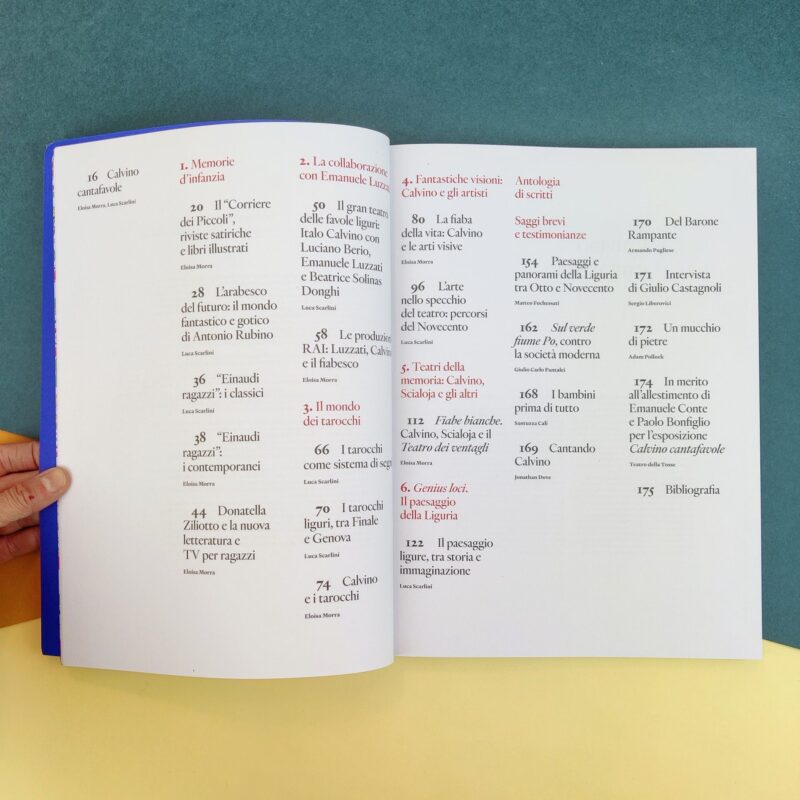 16 Calvino
cantafavole
Eloisa Morra, Luca Scarlini
1. Memorie
d'infanzia
20 Il “Corriere
dei Piccoli”,
riviste satiriche
e libri illustrati
Eloisa Morra
28 L'arabesco
del futuro: il mondo
fantastico e gotico
di Antonio Rubino
Luca Scarlini
36 “Einaudi
ragazzi”: i classici
Luca Scarlini
38 “Einaudi
ragazzi”:
i contemporanei
Eloisa Morra
44 Donatella
Ziliotto e la nuova
letteratura e
TV per ragazzi
Eloisa Morra
2. La collaborazione
con Emanuele Luzzati
50 Il gran teatro
delle favole liguri:
Italo Calvino con
Luciano Berio,
Emanuele Luzzati
e Beatrice Solinas
Donghi
Luca Scarlini
58 Le produzion
RAI: Luzzati, Calvino
e il fiabesco
Eloisa Morra
3. Il mondo
dei tarocchi
66 I tarocchi
come sistema di segn
Luca Scarlini
70 I tarocchi
liguri, tra Finale
e Genova
Luca Scarlini
74 Calvino
e i tarocchi
Eloisa Morra
4. Fantastiche visioni:
Calvino e gli artisti
80 La fiaba
della vita: Calvino
e le arti visive
Eloisa Morra
96 L'arte
nello specchio
del teatro: percorsi
del Novecento
Luca Scarlini
5. Teatri della
memoria: Calvino,
Scialoja e gli altri
112 Fiabe bianche.
Calvino, Scialoja e il
Teatro dei ventagli
Eloisa Morra
6. Genius loci.
Il paesaggio
della Liguria
122 Il paesaggio
ligure, tra storia e
immaginazione
Luca Scarlini
Antologia
di scritti
Saggi brevi
e testimonianze
154 Paesaggi e
panorami della Liguria
tra Otto e Novecento
Matteo Fochessati
162 Sul verde
fiume Po, contro
la società moderna
Giulio Carlo Pantalei
168 I bambini
prima di tutto
Santuzza Calì
169 Cantando
Calvino
Jonathan Dove
170 Del Barone
Rampante
Armando Pugliese
171 Intervista
di Giulio Castagnoli
Sergio Liberovici
172 Un mucchio
di pietre
Adam Pollock
174 In merito
all'allestimento di
Emanuele Conte
e Paolo Bonfiglio
per l'esposizione
Calvino cantafavole
Teatro della Tosse
175 Bibliografia